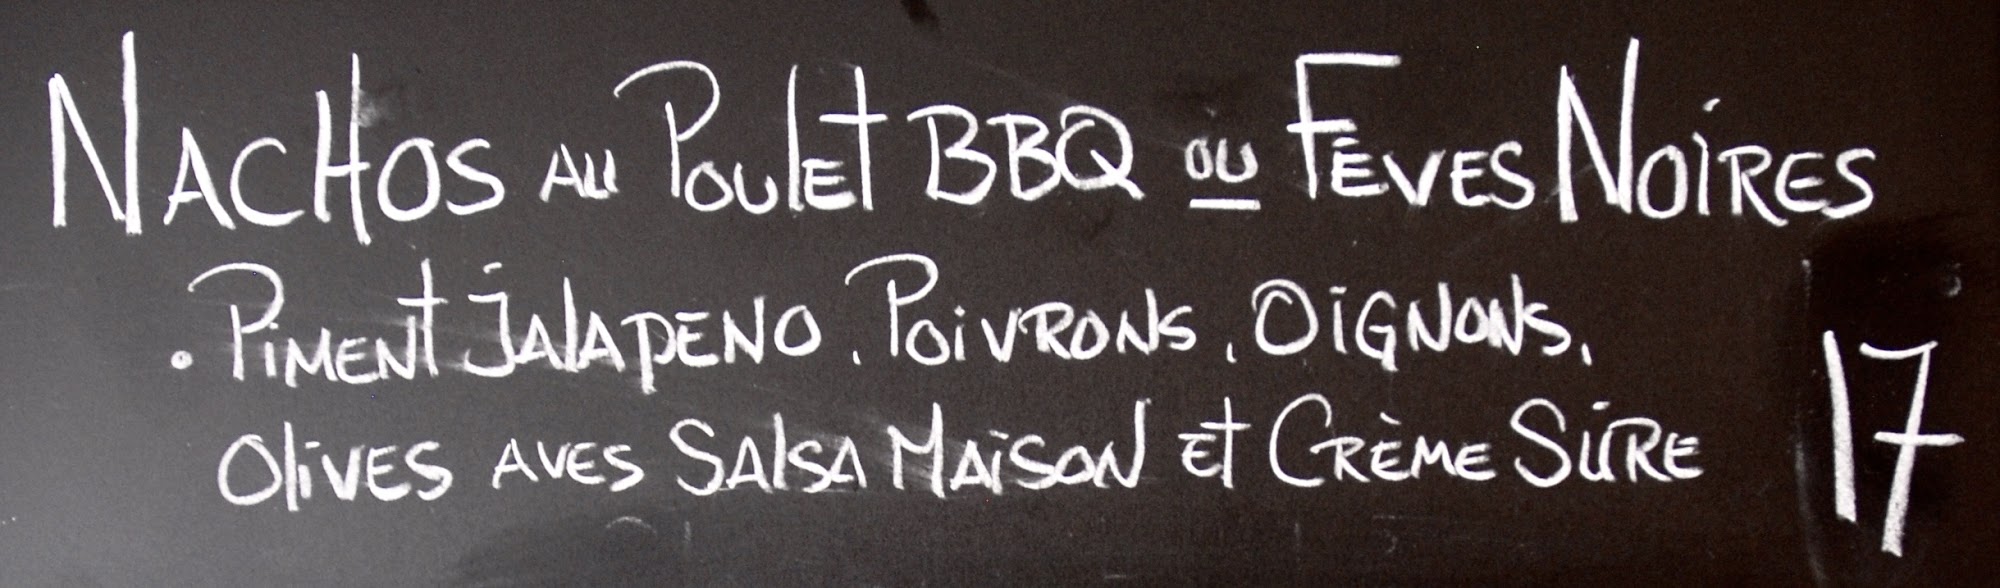 NACHOS AU POULET BBQ OU FÈVES NOIRES
• PIMENT JALAPENO, POIVRONS, OIGNONS,
OLIVES AVES SALSA MAISON ET CRÈME SÛRE
17